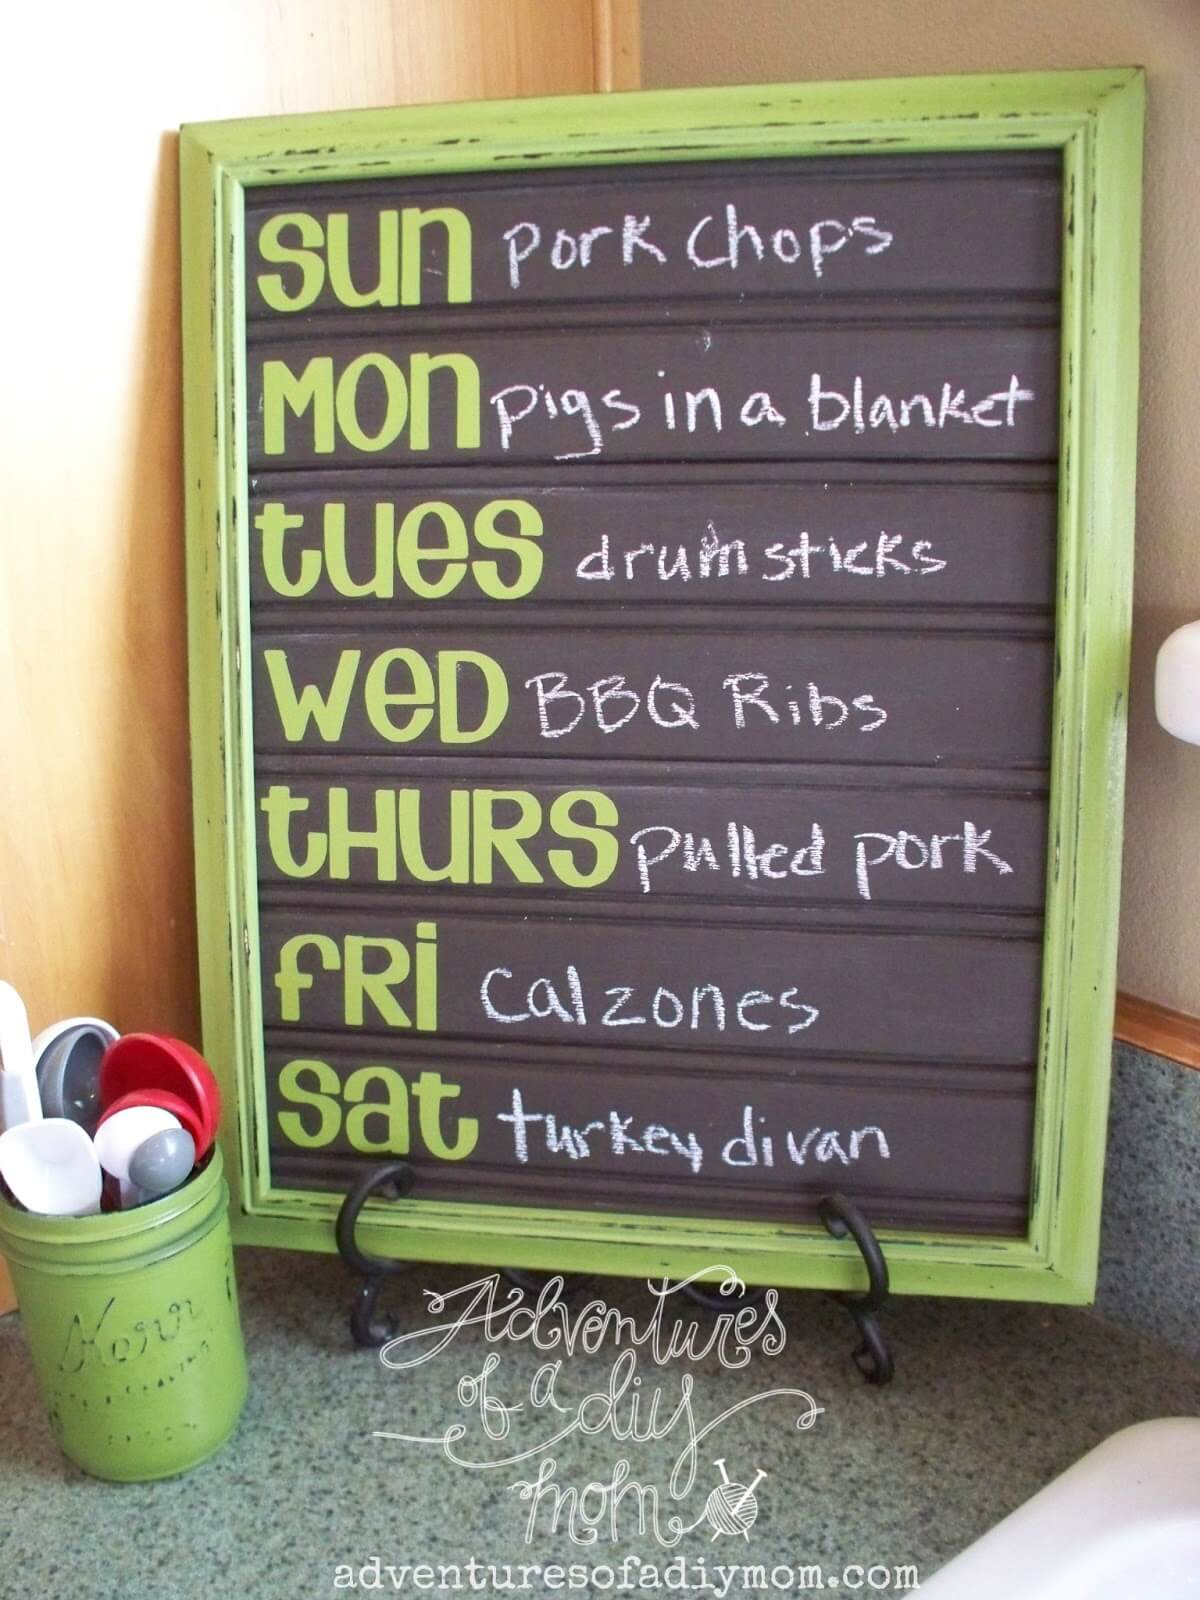 sun pork chops
Mon pigs in a blanket
tues drumsticks
Wed BBQ Ribs
tHURS pulled pork
fRi Calzones
sat turkey divan
Kerr
Adventures
of a diy
mom
adventuresofadiymom.com